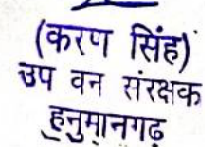 (करण सिंह)
उप वन संरक्षक
हनुमानगढ़